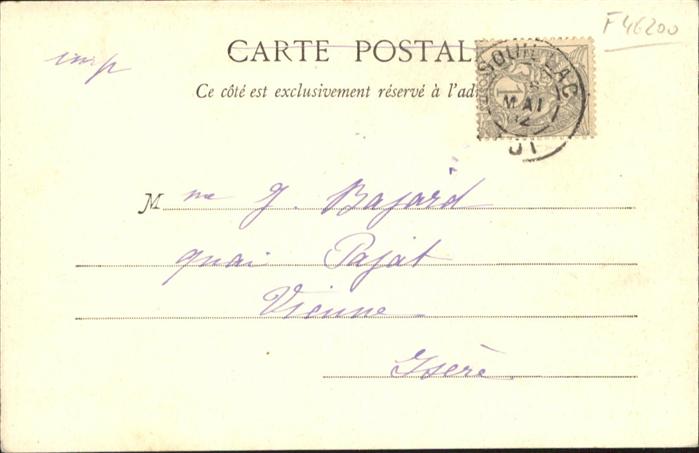 imp
F46200
CARTE POSTAL
Ce côté est exclusivement réservé à l'ad
SOUILLAC
1
MAI
01
Mme G. Bajard
quai Pajot
Vienne
Isère